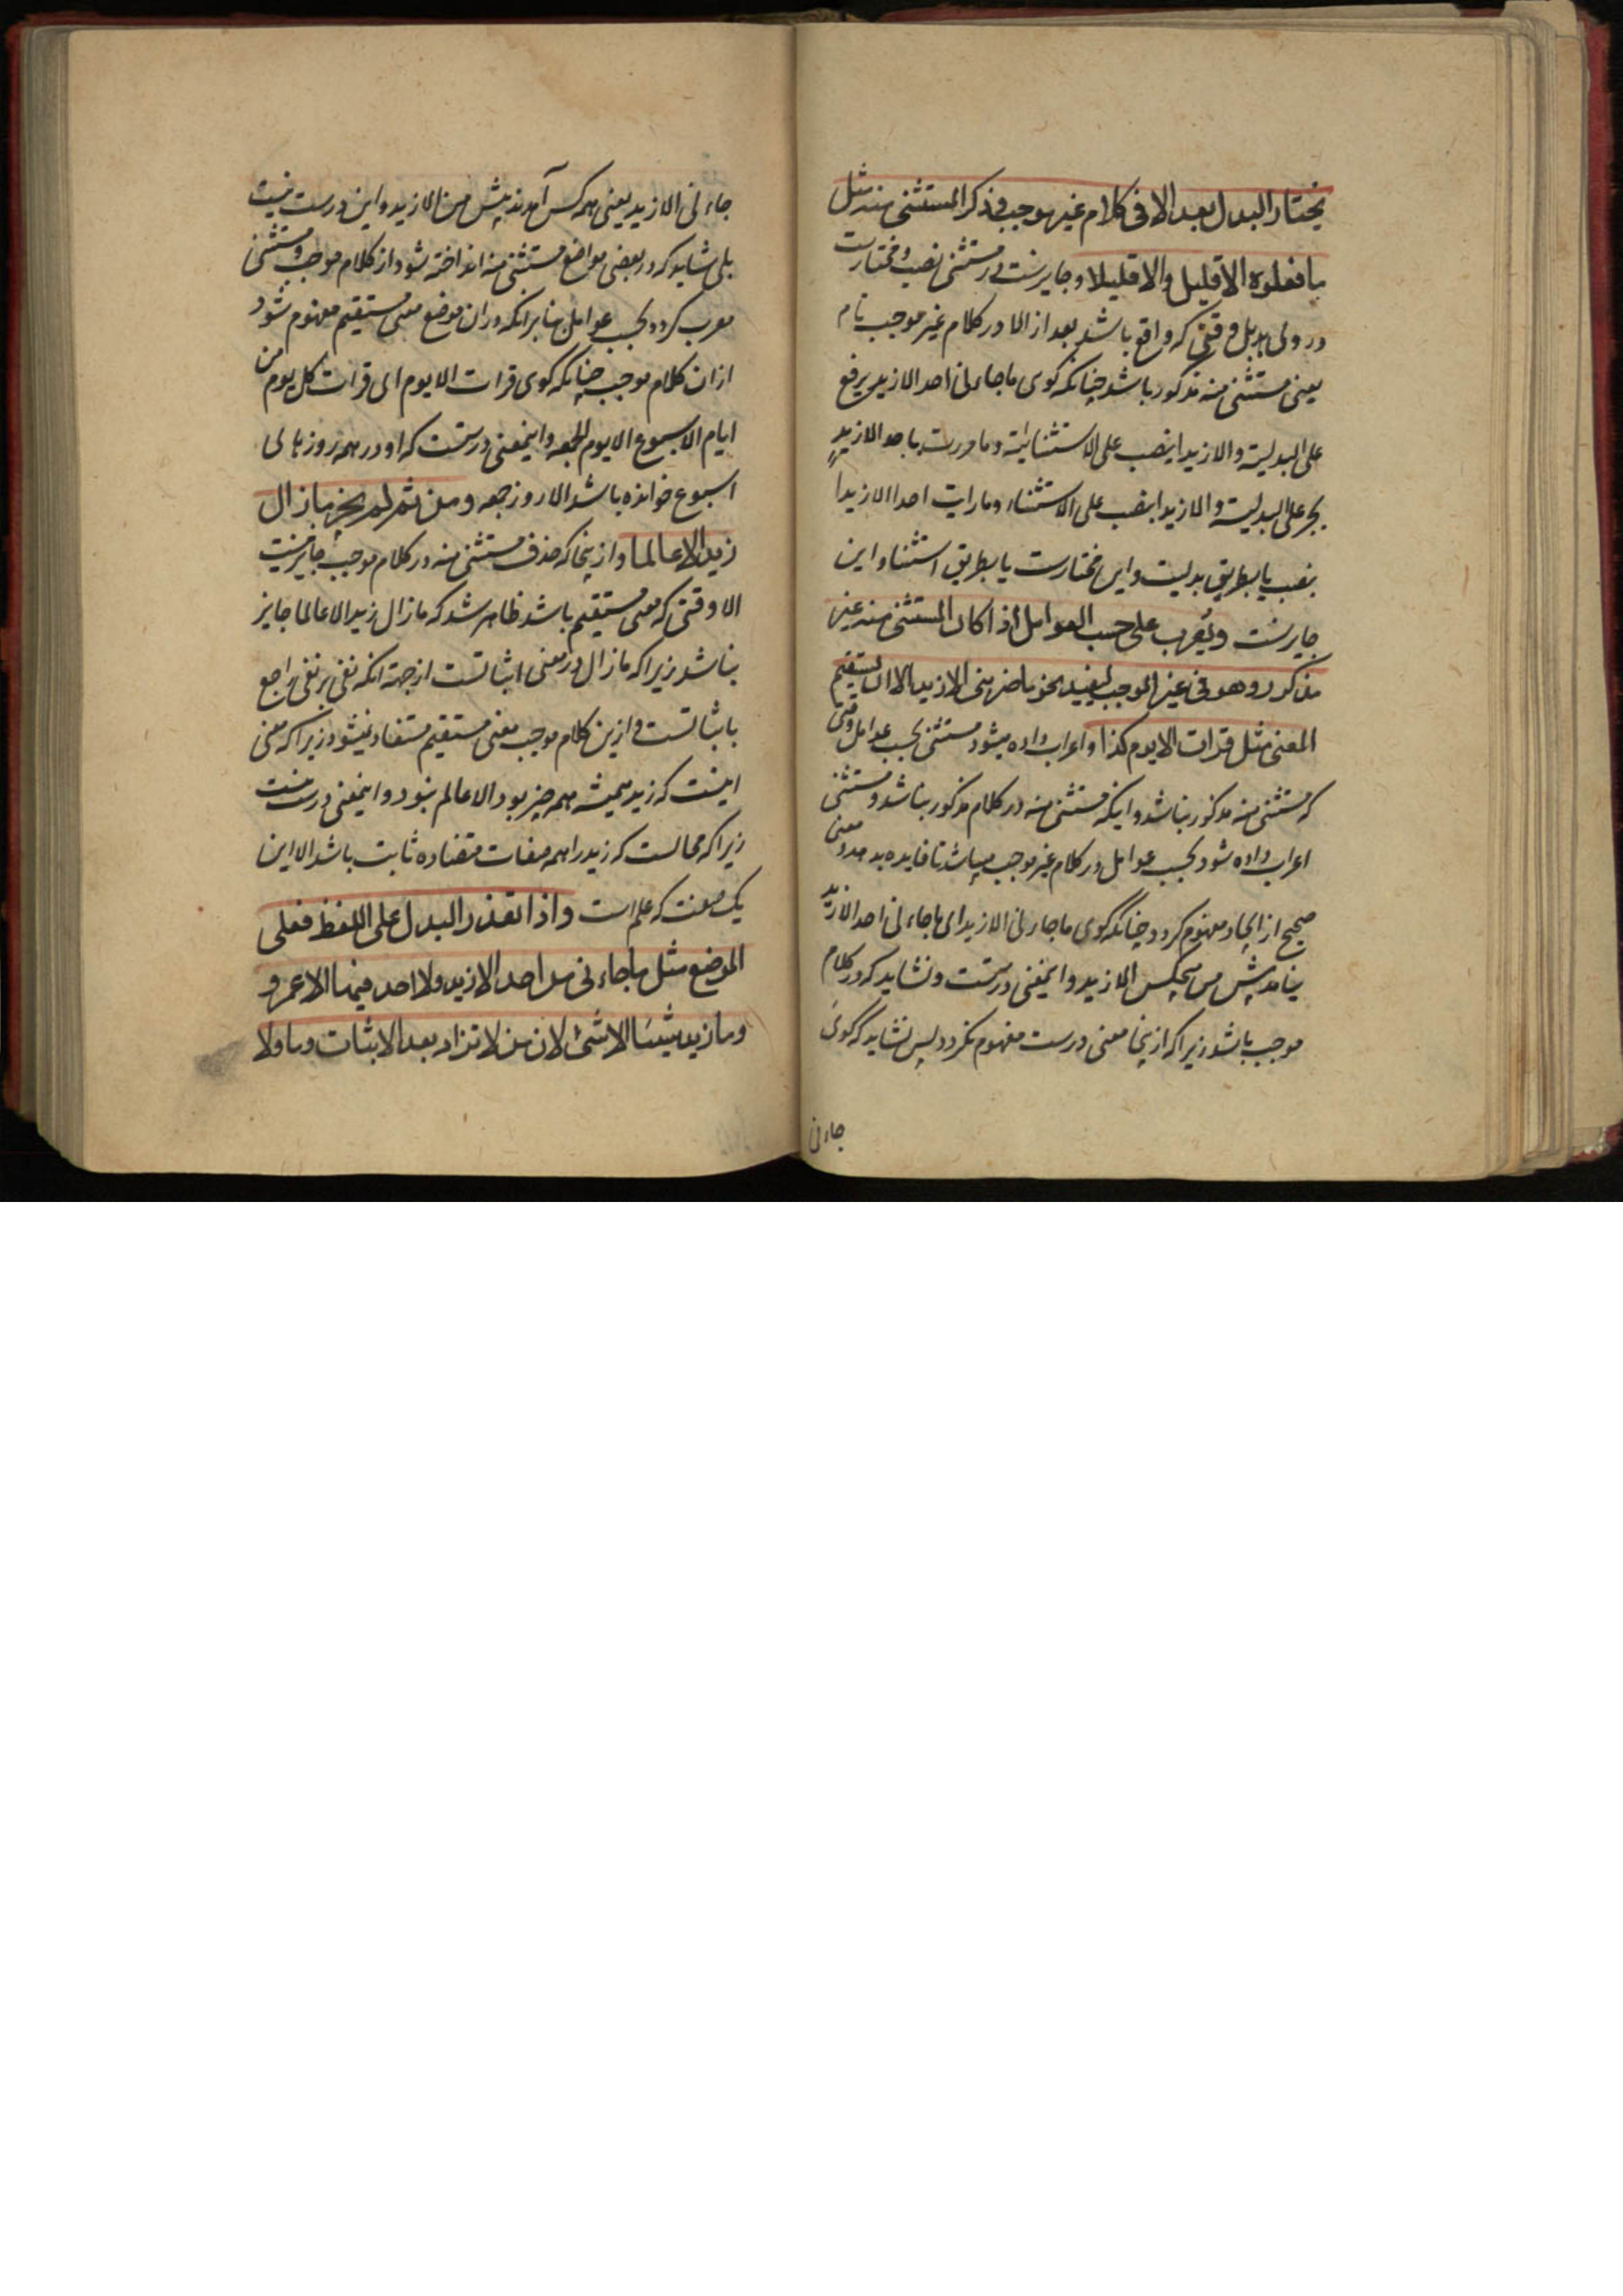 یختار البدل بعد الا فی کلام غیر موجب و ذکر المستثنی منه مثل
ما فعلوه الا قلیل والا قلیلا و جایزست در مستثنی نصب و مختارست
در وی بدل وقتی که واقع باشد بعد از الا در کلام غیر موجب تام
یعنی مستثنی منه مذکور باشد چنانکه کوی ما جاءنی احد الا زید برفع
علی البدلیة والا زیدا بنصب علی الاستثنائیة و ما مررت باحد الا زید
بجر علی البدلیة والا زیدا بنصب علی الاستثناء و ما رایت احدا الا زیدا
بنصب یا بطریق بدلیت و این مختارست یا بطریق استثنا و این
جایزست ویُعرب علی حسب العوامل اذا کان المستثنی منه غیر
مذکور و هو فی غیر الموجب لیفید نحو ما ضربنی الا زید الا ان یستقیم
المعنی مثل قرات الا یوم کذا و اعراب داده میشود مستثنی بحسب عوامل وقتی
که مستثنی منه مذکور نباشد و اینکه مستثنی منه در کلام مذکور نباشد و مستثنی
اعراب داده شود بحسب عوامل در کلام غیر موجب میباشد تا فایده بدهد و معنی
صحیح از ایجاد مفهوم کردد چنانکه کوی ما جاءنی الا زید ای ما جاءنی احد الا زید
نیامد پیش من هیچکس الا زید و اینمعنی درستست و نشاید که در کلام
موجب باشد زیرا که ازینجا معنی درست مفهوم نکردد پس نشاید که کوی
جاءنی
جاءنی الا زید یعنی همه کس آمدند پیش من الا زید و این درست نیست
بلی شاید که در بعضی مواضع مستثنی منه انداخته شود از کلام موجب و مستثنی
معرب کردد بحسب عوامل بنا بر انکه در ان موضع معنی مستقیم مفهوم شود
از ان کلام موجب چنانکه کوی قرات الا یوم ای قرات کل یوم من
ایام الاسبوع الا یوم الجمعه و اینمعنی درستست که او در همه روزهای
اسبوع خوانده باشد الا روز جمعه و من ثم لم یجز ما زال
زید الا عالما و ازینجا که حذف مستثنی منه در کلام موجب جایز نیست
الا وقتی که معنی مستقیم باشد ظاهر شد که ما زال زید الا عالما جایز
نباشد زیرا که ما زال در معنی اثباتست از جهة انکه نفی بر نفی راجع
باثباتست و ازین کلام موجب معنی مستقیم مستفاد نمیشود زیرا که معنی
اینست که زید همیشه همه چیز بود الا عالم نبود و اینمعنی درست نیست
زیرا که محالست که زید را همه صفات متضاده ثابت باشد الا این
یک صفت که علم است و اذا تعذر البدل علی اللفظ فعلی
الموضع مثل ما جاءنی من احد الا زید ولا احد فیها الا عمرو
وما زید شیئا الا شئ لان من لا تزاد بعد الاثبات وما ولا